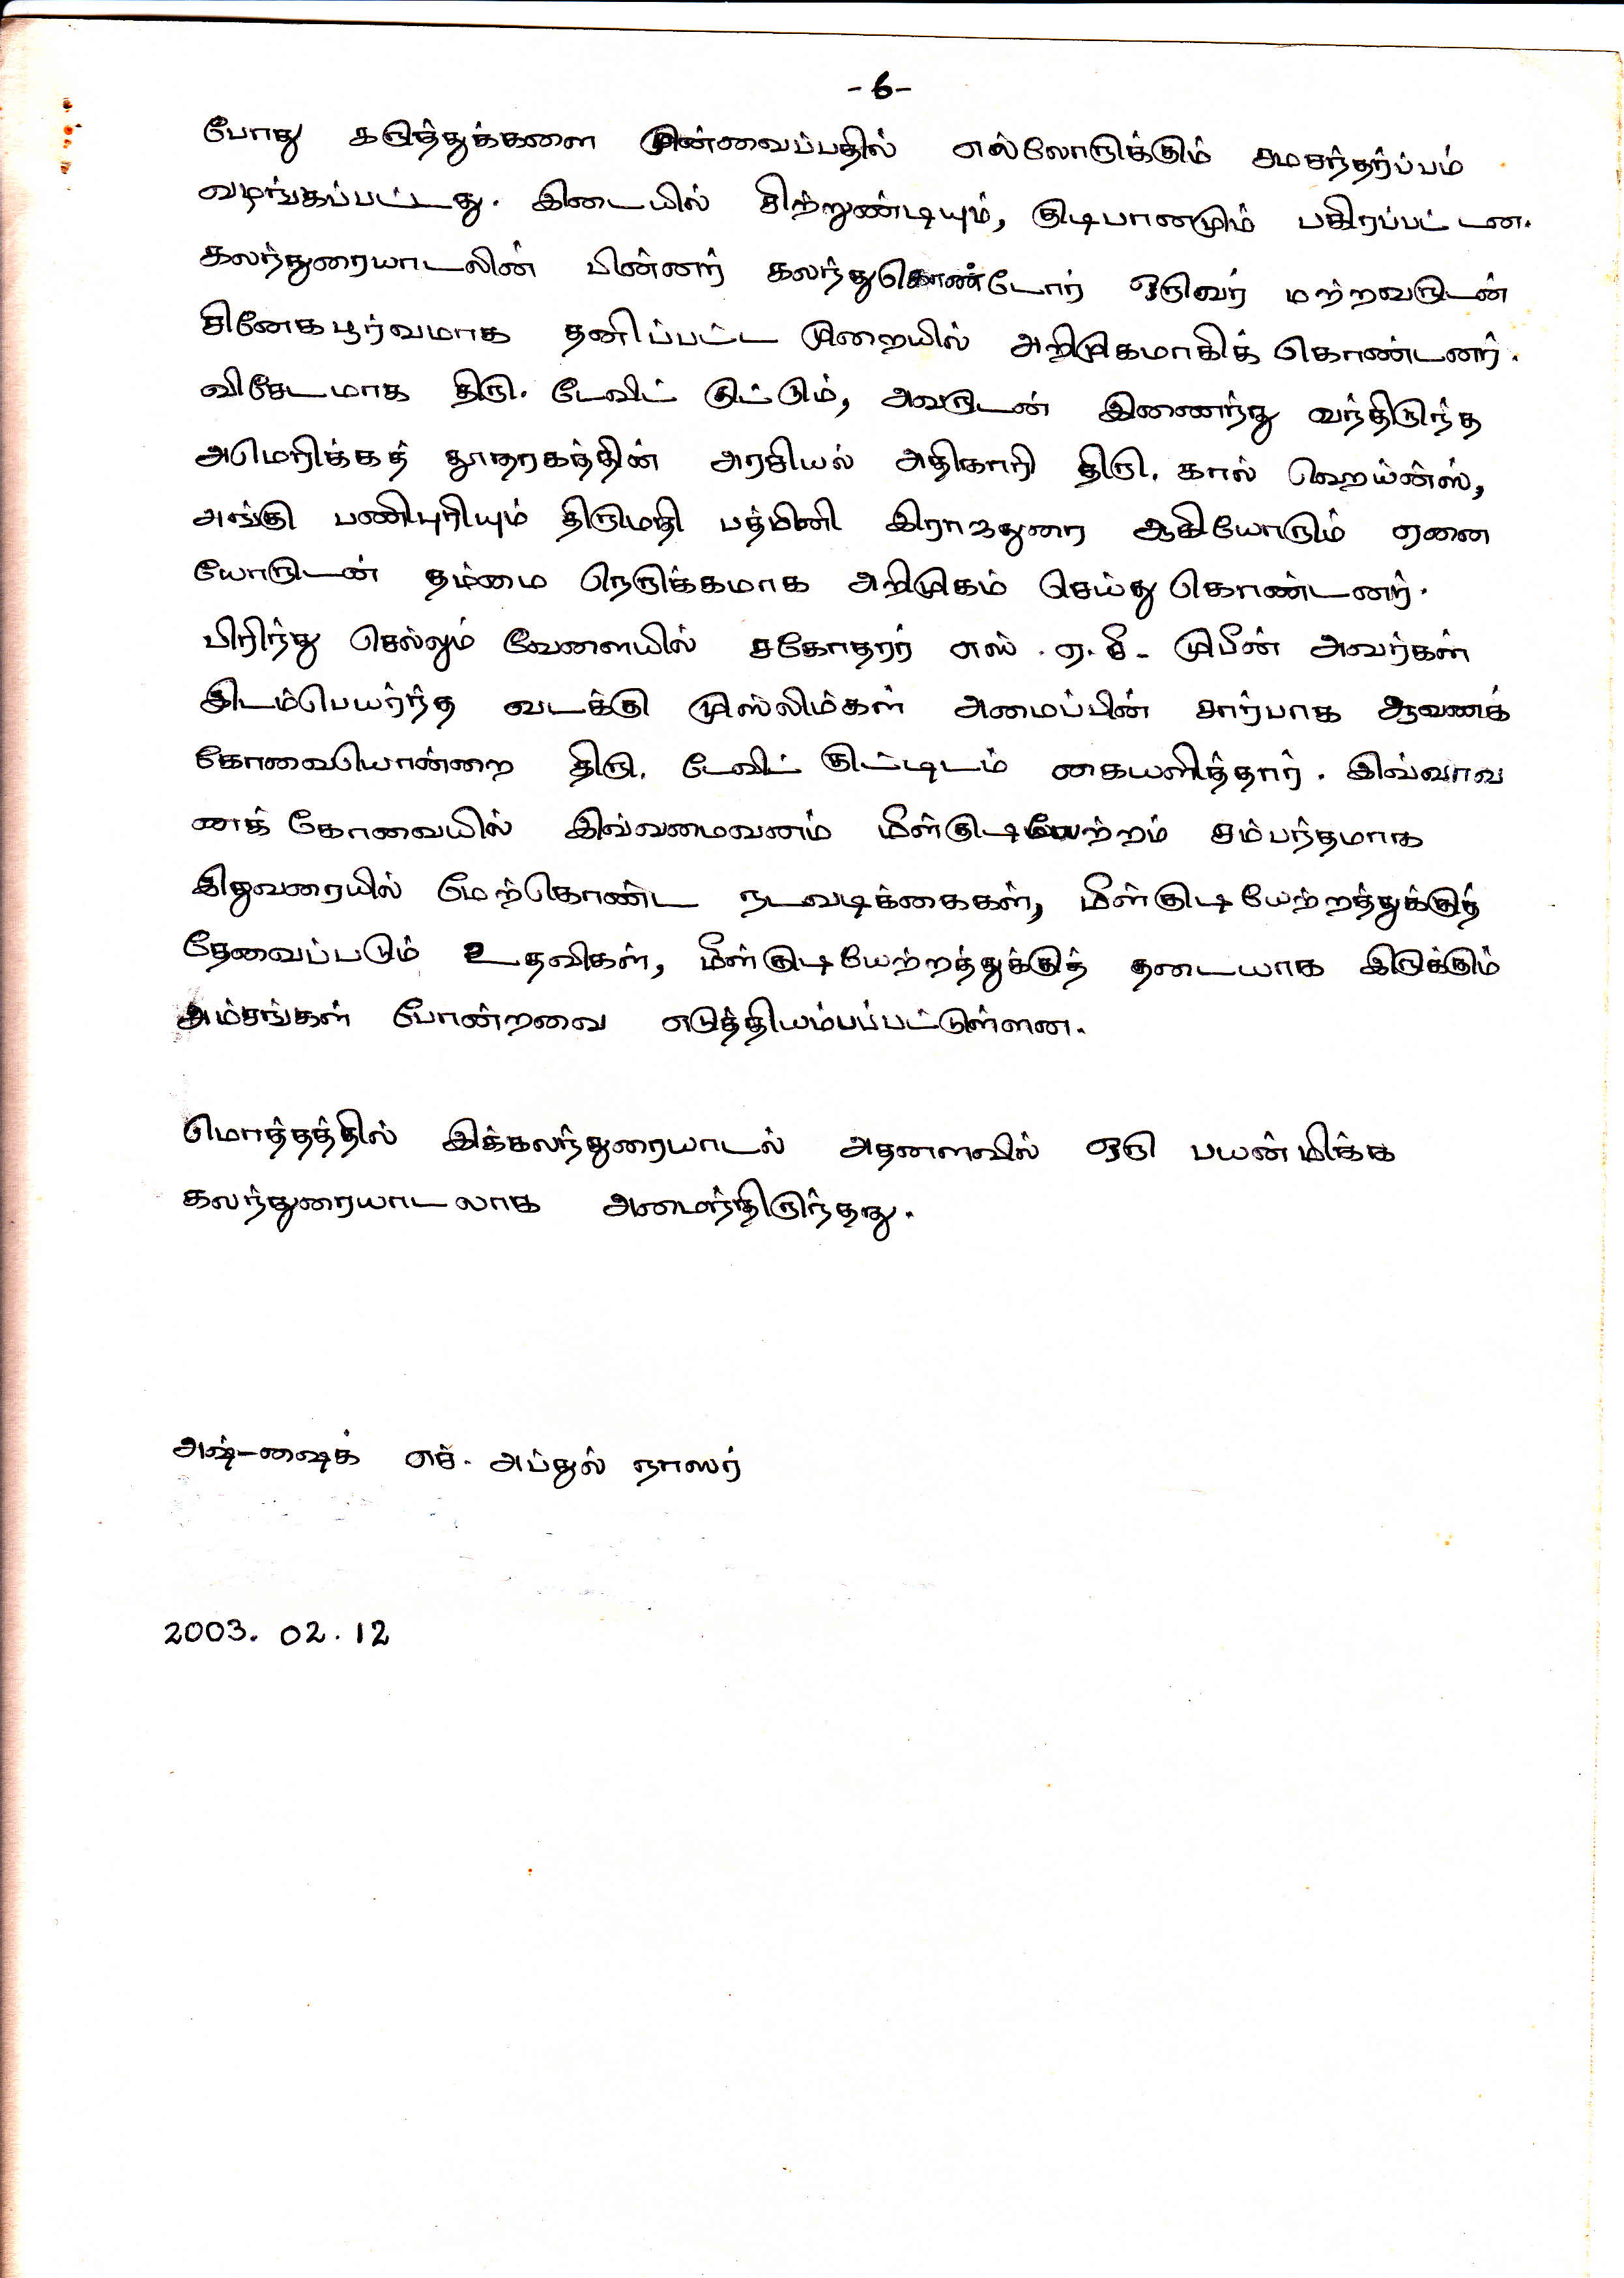 -6-
போது கருத்துக்களை முன்வைப்பதில் எல்லோருக்கும் சமசந்தர்ப்பம்
வழங்கப்பட்டது. இடையில் சிற்றுண்டியும், குடிபானமும் பகிரப்பட்டன.
கலந்துரையாடலின் பின்னர் கலந்துகொண்டோர் ஒருவர் மற்றவருடன்
சினேகபூர்வமாக தனிப்பட்ட முறையில் அறிமுகமாகிக் கொண்டனர்.
விசேடமாக திரு. டேவிட் குட்டும், அவருடன் இணைந்து வந்திருந்த
அமெரிக்கத் தூதரகத்தின் அரசியல் அதிகாரி திரு. கால் ஹெய்ன்ஸ்,
அங்கு பணிபுரியும் திருமதி பத்மினி இராசதுரை ஆகியோரும் ஏனை
யோருடன் தம்மை நெருக்கமாக அறிமுகம் செய்து கொண்டனர்.
பிரிந்து செல்லும் வேளையில் சகோதரர் எஸ். ஏ. சீ. முபீன் அவர்கள்
இடம்பெயர்ந்த வடக்கு முஸ்லிம்கள் அமைப்பின் சார்பாக ஆவணக்
கோவையொன்றை திரு. டேவிட் குட்டிடம் கையளித்தார். இவ்வாவ
ணக் கோவையில் இவ்வமைவனம் மீள்குடியேற்றம் சம்பந்தமாக
இதுவரையில் மேற்கொண்ட நடவடிக்கைகள், மீள்குடியேற்றத்துக்குத்
தேவைப்படும் உதவிகள், மீள்குடியேற்றத்துக்குத் தடையாக இருக்கும்
அம்சங்கள் போன்றவை எடுத்தியம்பப்பட்டுள்ளன.
மொத்தத்தில் இக்கலந்துரையாடல் அதனளவில் ஒரு பயன்மிக்க
கலந்துரையாடலாக அமைந்திருந்தது.
அஷ்-ஷைக் எச். அப்துல் நாஸர்
2003. 02. 12